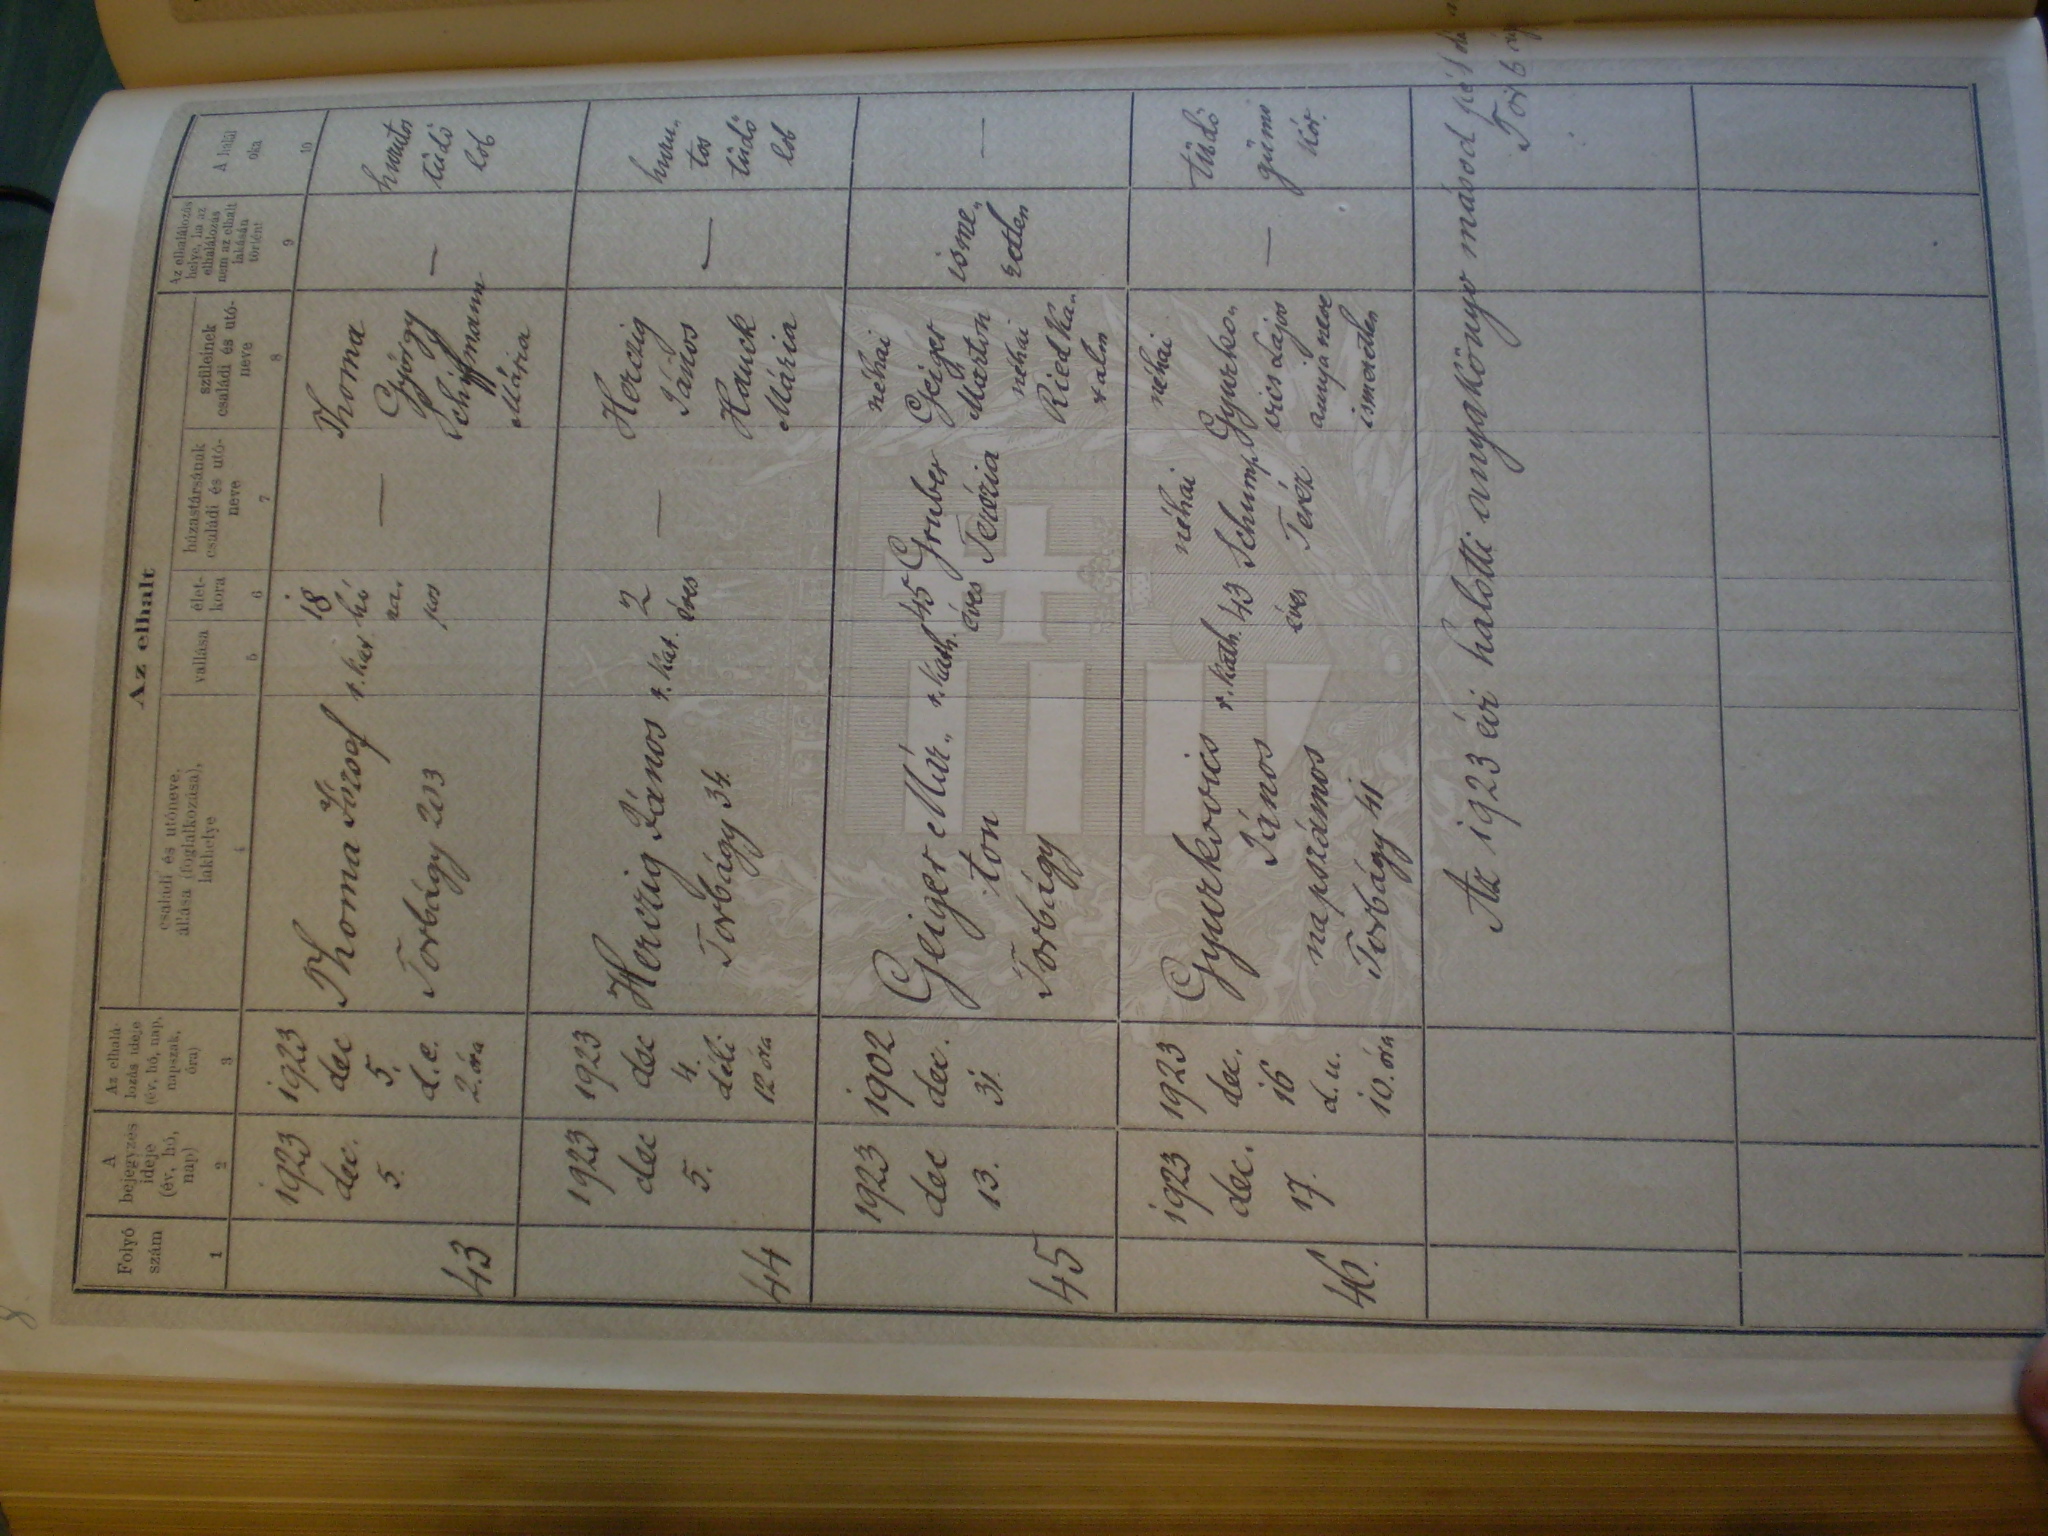 8.
Az elhalt
Folyó
szám
A
bejegyzés
ideje
(év, hó,
nap)
Az elhalá-
lozás ideje
(év, hó, nap,
napszak,
óra)
családi és utóneve,
állása (foglalkozása),
lakhelye
vallása
élet-
kora
házastársának
családi és utó-
neve
szüleinek
családi és utó-
neve
Az elhalálozás
helye, ha az
elhalálozás
nem az elhalt
lakásán
történt
A halál
oka
1
2
3
4
5
6
7
8
9
10
43
1923
dec.
5.
1923
dec
5.
d.e.
2. óra
Thoma József
Torbágy 203
r. kat
18
hó
na-
pos
—
Thoma
György
Schiffmann
Mária
—
hurutos
tüdő
lob
44
1923
dec
5.
1923
dec
4.
déli
12 óra
Herczig János
Torbágy 34.
r. kat.
2
éves
—
Herczig
János
Hauck
Mária
—
huru-
tos
tüdő
lob
45
1923
dec
13.
1902
dec.
31.
Geiger Már-
ton
Torbágy
r. kath.
45
éves
Gruber
Terézia
néhai
Geiger
Márton
néhai
Ried Ka-
talin
isme-
retlen
—
46.
1923
dec.
17.
1923
dec.
16
d. u.
10. óra
Gyurkovics
János
napszámos
Torbágy 41
r. kath.
43
éves
néhai
Schump
Teréz
néhai
Gyurko-
vics Lajos
anyja neve
ismeretlen
—
tüdő
gümő
kór.
Az 1923 évi halotti anyakönyv másod